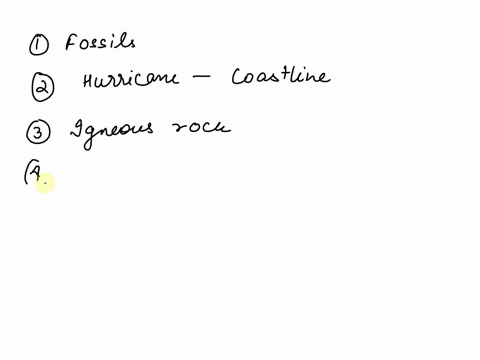 ① Fossils
② Hurricane — Coastline
③ Igneous rock
(4